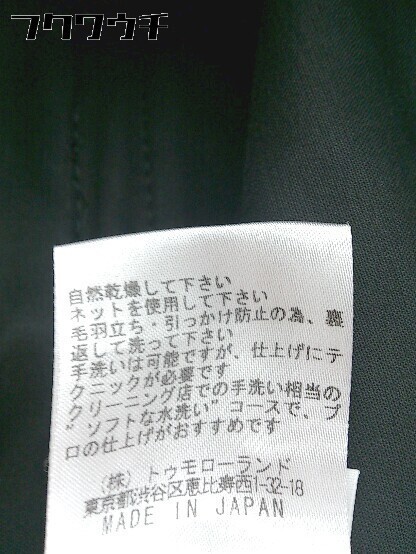 フクウクチ
自然乾燥して下さい
ネットを使用して下さい
毛羽立ち・引っかけ防止の為、裏
返して洗って下さい
手洗いは可能ですが、仕上げにテ
クニックが必要です
クリーニング店での手洗い相当の
”ソフトな水洗い”コースで、プ
ロの仕上げがおすすめです
(株) トゥモローランド
東京都渋谷区恵比寿西1-32-18
MADE IN JAPAN